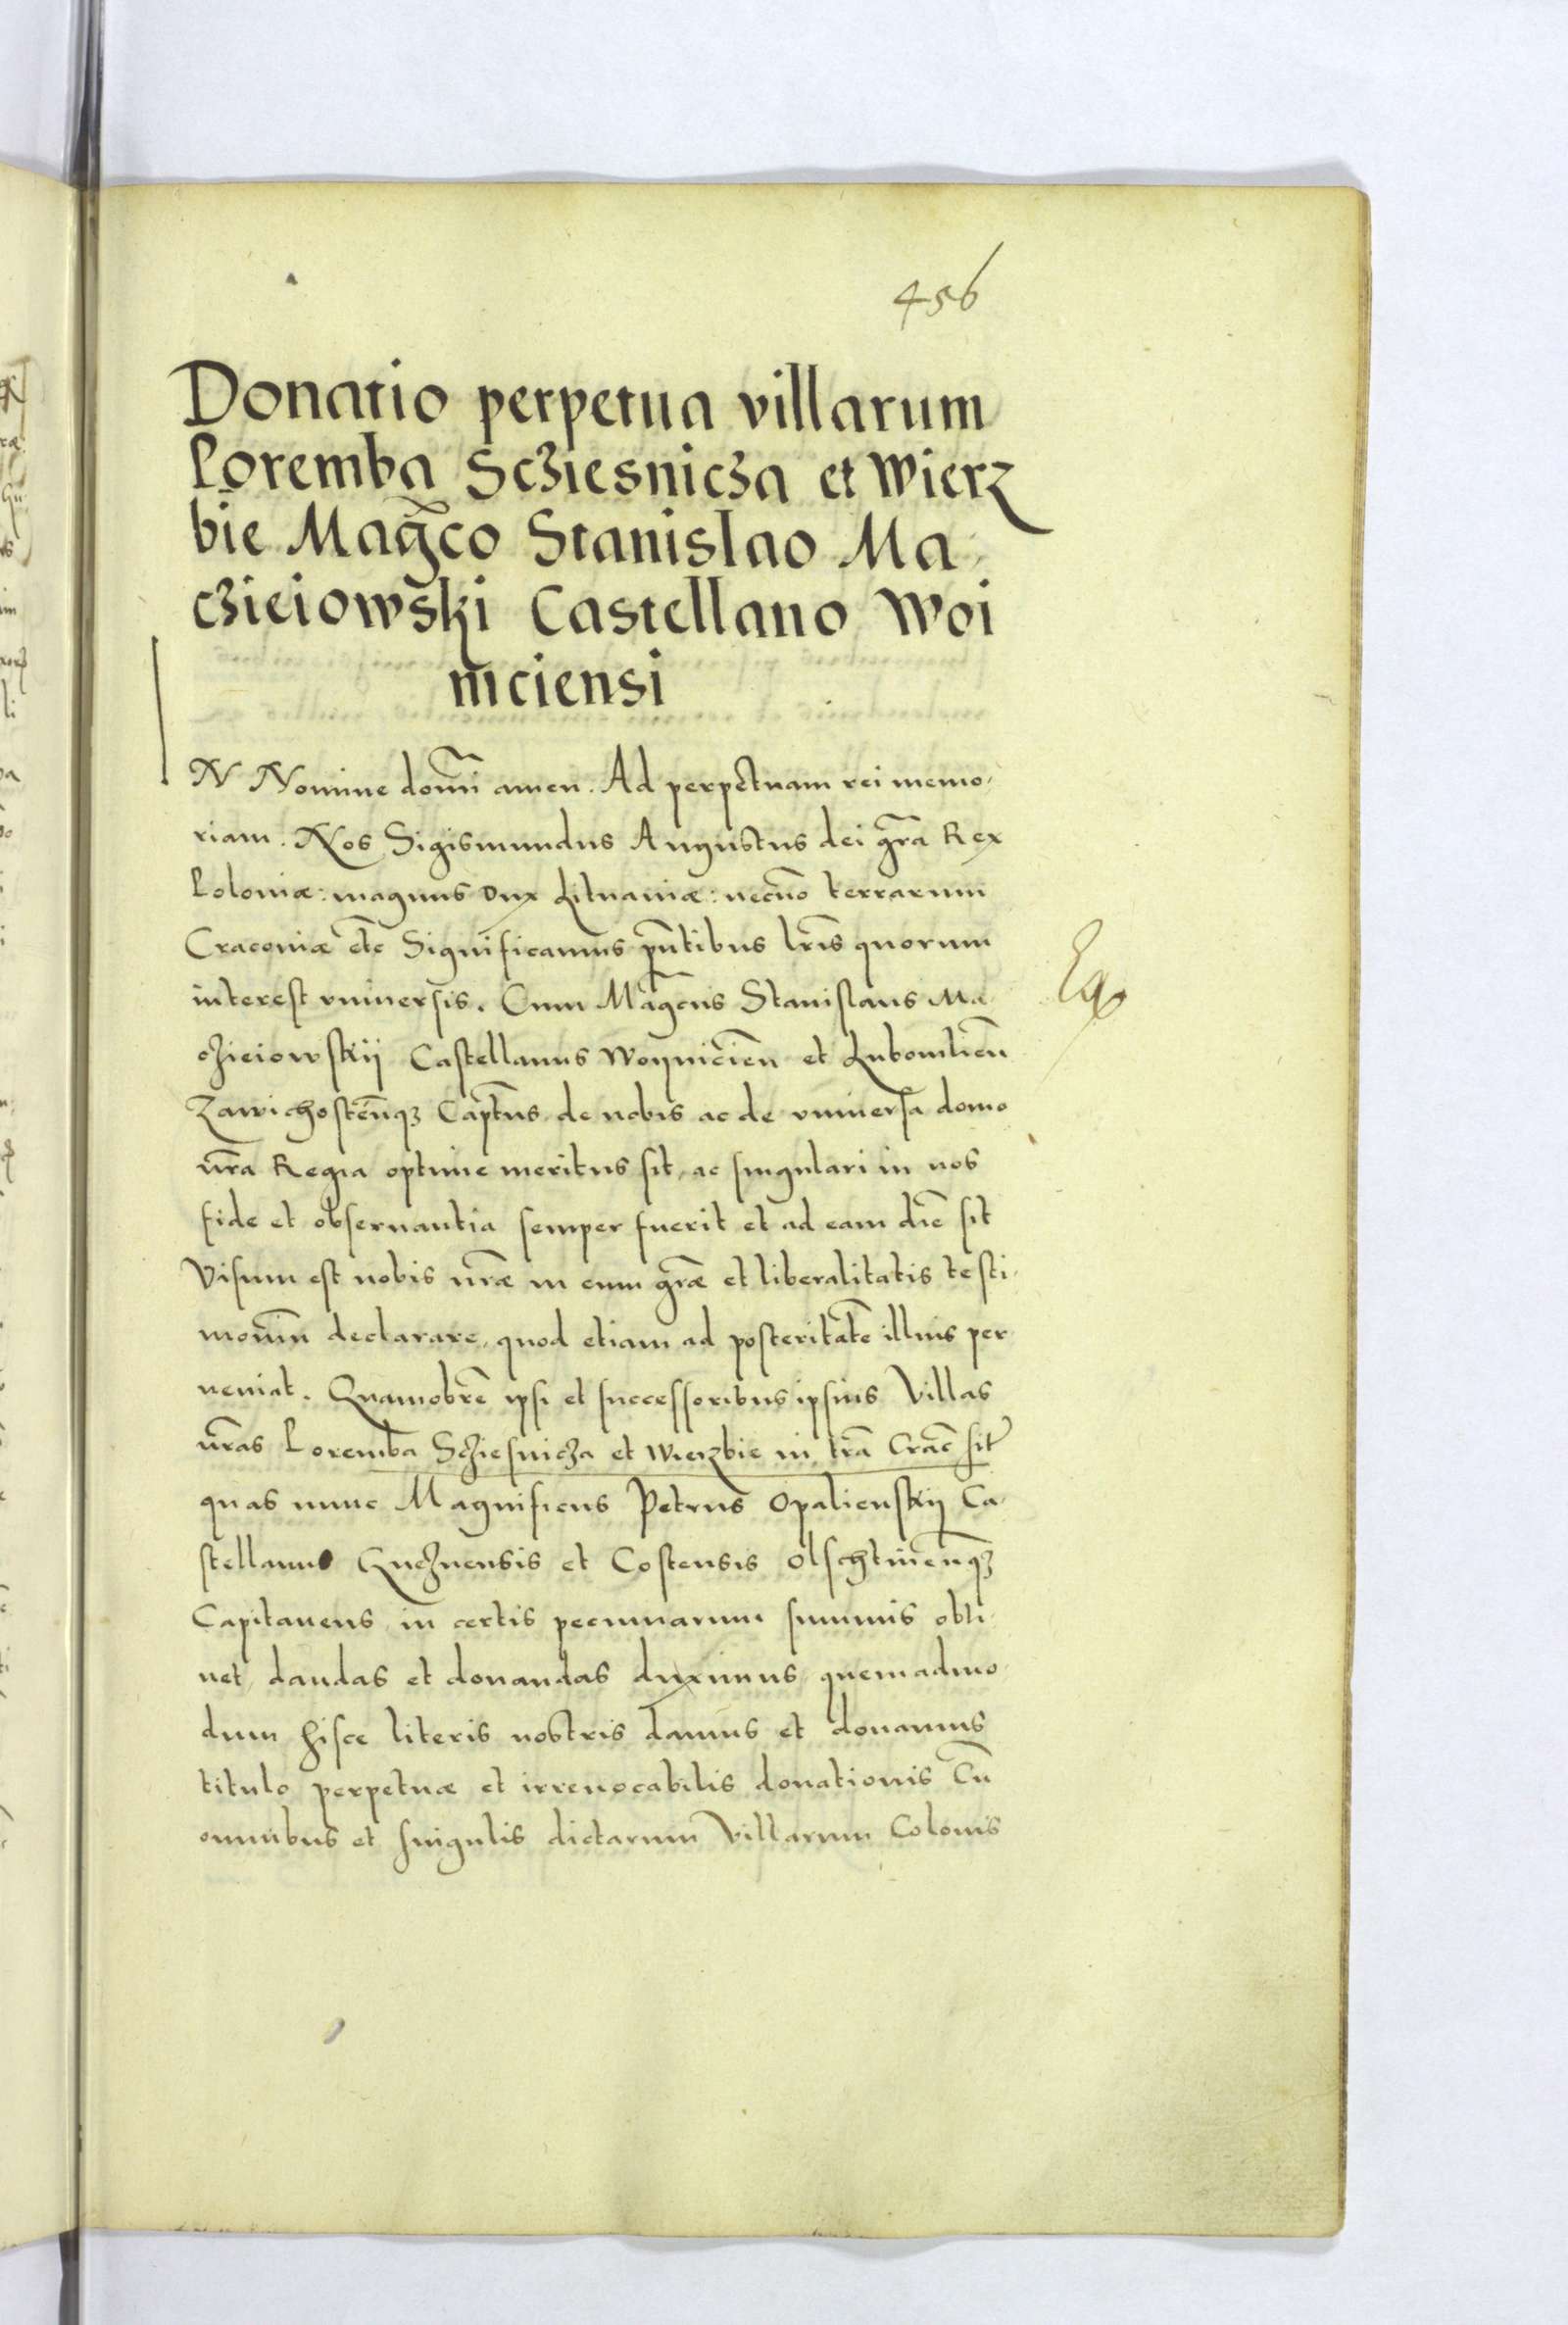 456
Donatio perpetua villarum
Poremba Scziesnicza et Wierz
bie Mag̃co Stanislao Ma
czieiowski Castellano Woi
niciensi
IN Nomine domĩ amen. Ad perpetuam rei memo-
riam. Nos Sigismundus Augustus dei gr̃a Rex
Poloniæ: magnus Dux Lituaniæ: necnõ terrarum
Cracoviæ etc̃ Significamus pñtibus lr̃is quorum
interest vniuersis. Cum Mag̃cus Stanislaus Ma-
czieiowskij Castellanus Woyniciẽn et Lubomliẽn
Zawichostẽnqꝫ Capt̃us de nobis ac de vniuersa domo
nr̃a Regia optime meritus sit, ac singulari in nos
fide et obseruantia semper fuerit et ad eam diẽ sit
Visum est nobis nr̃æ in eum gr̃æ et liberalitatis testi-
moniũ declarare, quod etiam ad posteritatẽ illius per
ueniat. Quamobrẽ ipsi et successoribus ipsius Villas
nr̃as Poremba Scziesnicza et Wierzbie in tr̃a Crac̃ sit̃
quas nunc Magnificus Petrus Opalienskij Ca-
stellanus Gneznensis et Costensis Olschtinẽnqꝫ
Capitaneus in certis pecuniarum summis obti-
net, dandas et donandas duximus quemadmo-
dum hisce literis nostris damus et donamus
titulo perpetuæ et irreuocabilis donationis Cũ
omnibus et singulis dictarum Villarum Colonis